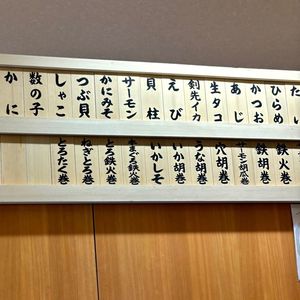 たい
ひらめ
かつお
あじ
生タコ
剣先イカ
えび
貝柱
サーモン
かにみそ
つぶ貝
しゃこ
数の子
かに
鉄火巻
鉄胡巻
穴胡巻
サーモン胡瓜巻
うな胡巻
いか胡巻
いかしそ
とろ鉄火巻
ねぎとろ巻
とろたく巻